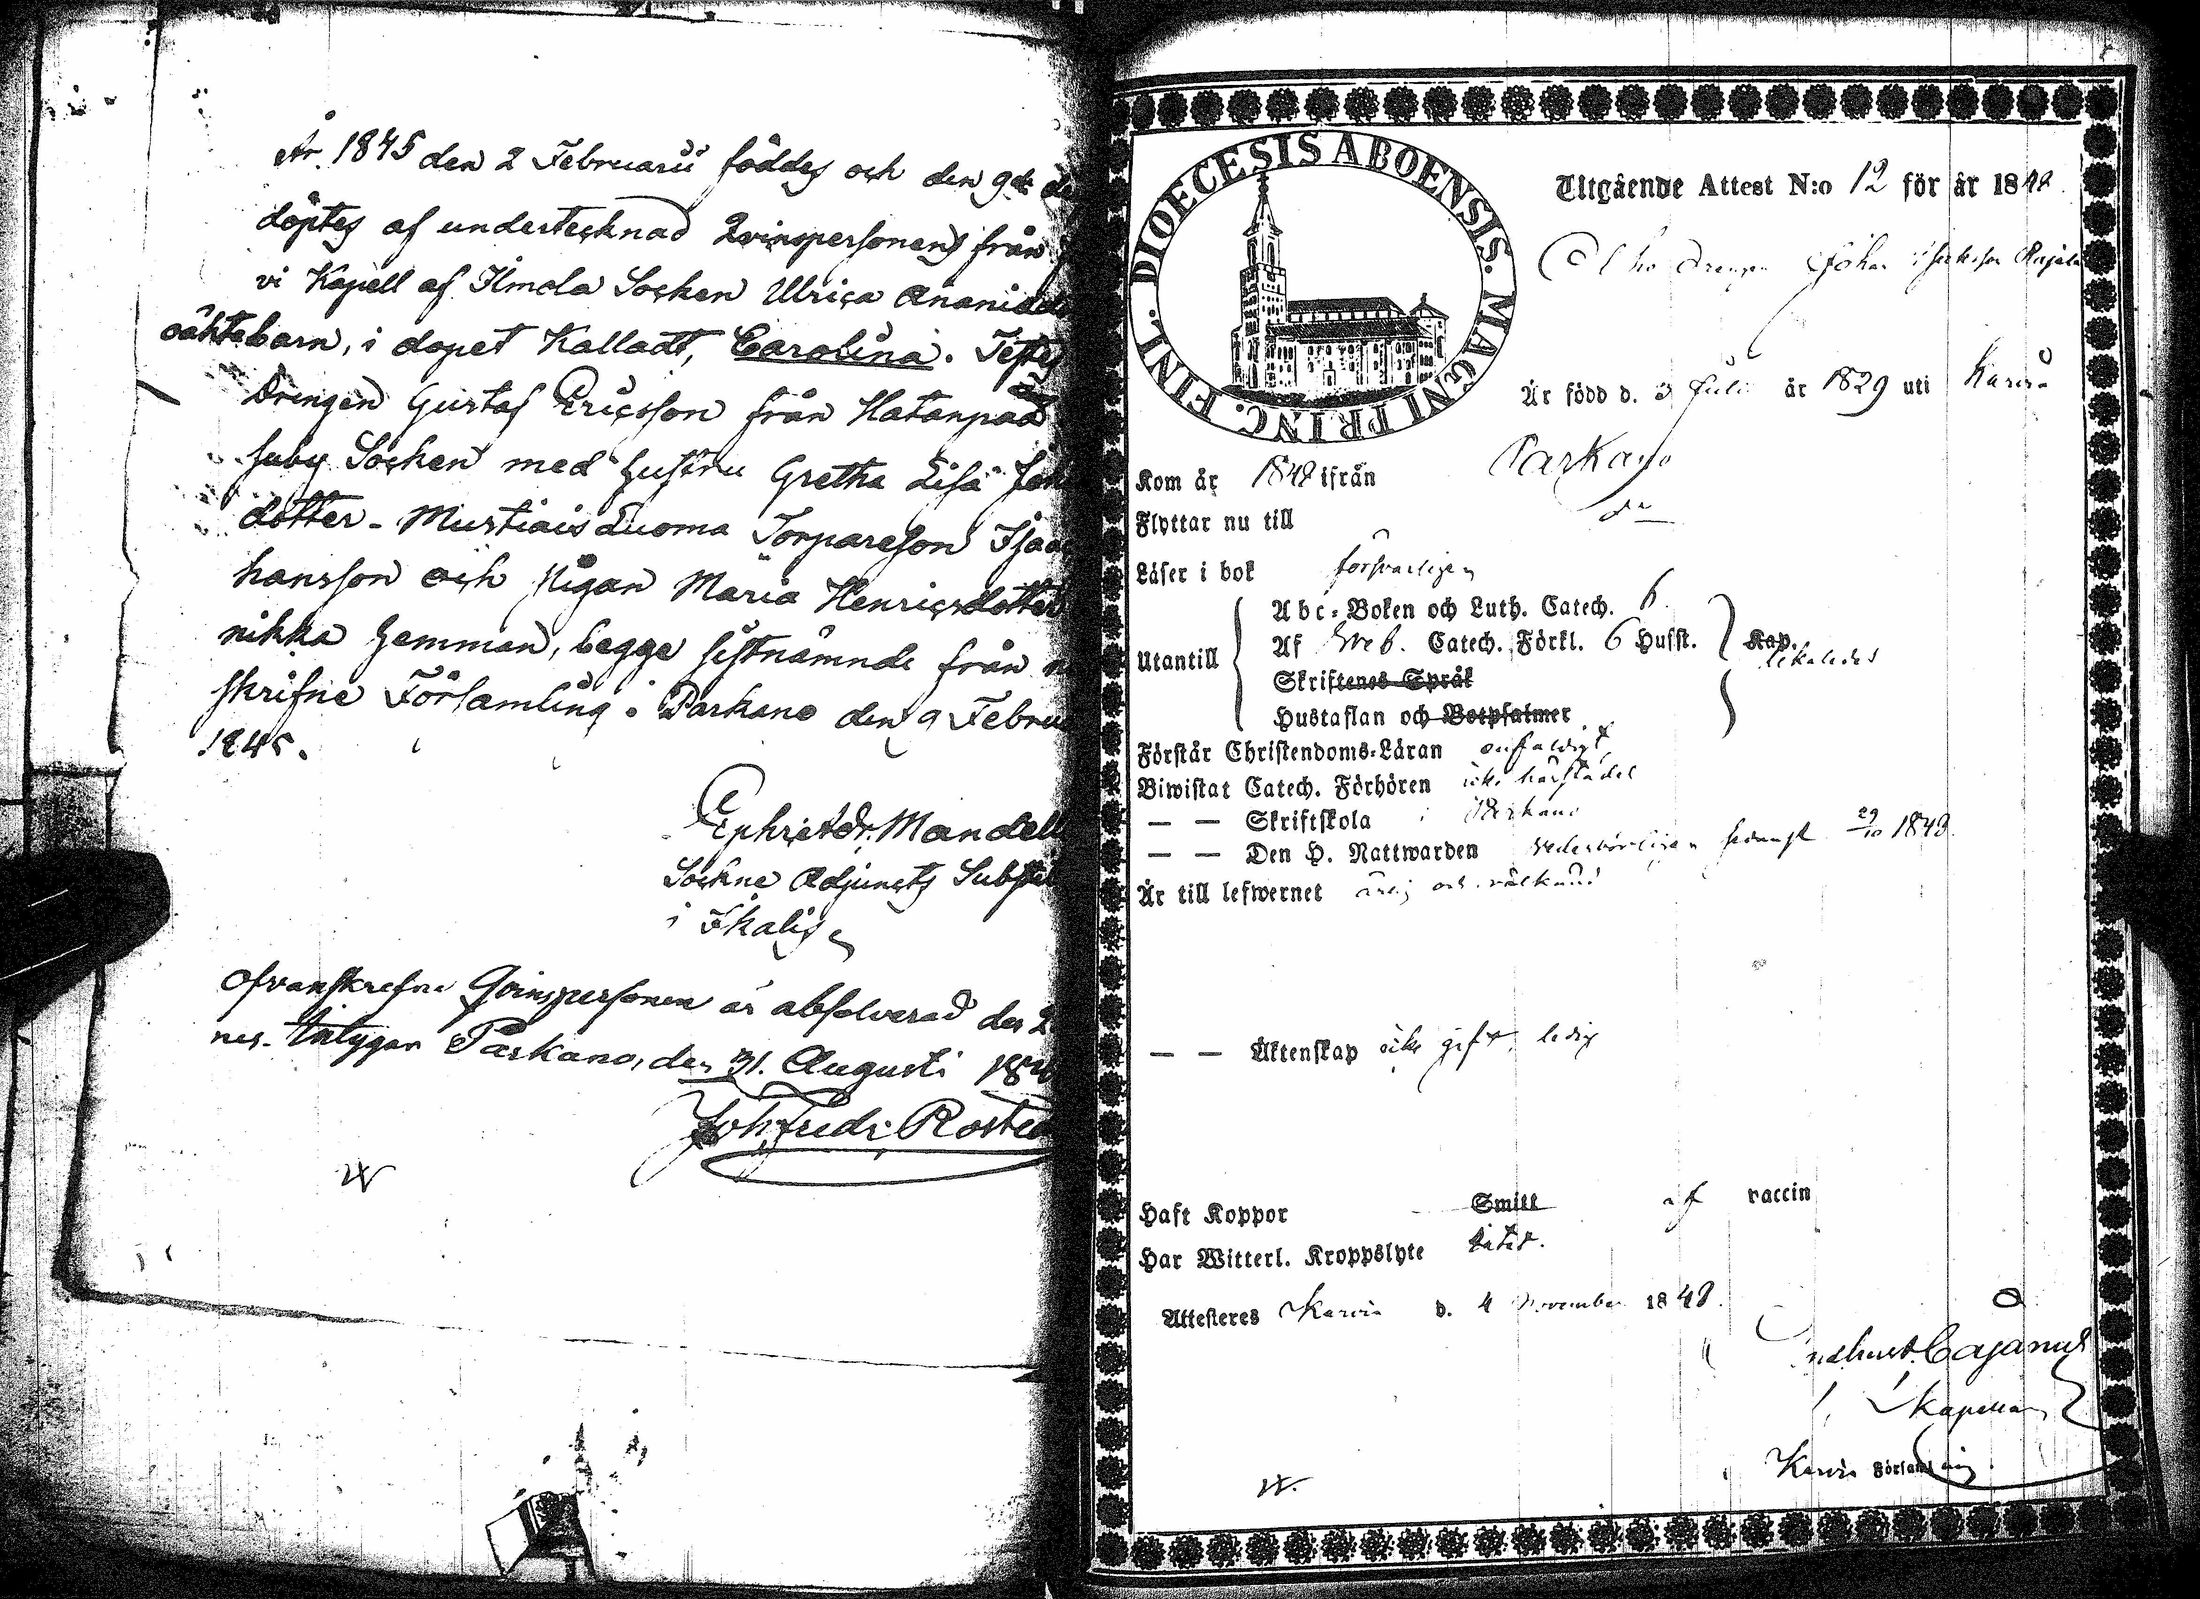 År 1845 den 2 Februarii föddes och den 9de
döptes af undertecknad Qvinspersonens från
vi Kapell af Ilmola Socken Ulrica
oäkta barn, i dopet Kalladt, Carolina.
Drengen Gustaf Ericsson från Hatanpää
suby Socken med hustru Gretha Lisa
dotter - Mustiais Luoma Torpareson
hansson och Pigan Maria Henricsdotter
nikka hemman, begge sistnämnde från
skrifne Församling i Parkano den 9
1845.
Mandell
Sockne Adjuncts
i Ikalis
Ofvanskrefne Qvinspersonen är absolverad den
nes. Intygar Parkano, den 31. Augusti
Joh. Fredr.
DIOECESIS ABOENSIS. MAGNI PRINC. FINL.
Utgående Attest N:o 12 för år 1848.
Johan Rajala
Är född d. 3 Juli år 1829 uti Karvia
Kom år 1848 ifrån Parkano
Flyttar nu till
Läser i bok försvarligen
Utantill
Abc-Boken och Luth. Catech. 6.
Af Sveb. Catech. Förkl. 6 Hufst. Kap.
Skriftenes Språk
likaledes
Hustaflan och Botpsalmer
Förstår Christendoms-Läran enfaldigt,
Biwistat Catech. Förhören icke härstädes
— — Skriftskola i Parkano
— — Den H. Nattwarden vederbörligen senast 29/10 1848.
Är till lefwernet ärlig och välkänd
— — Äktenskap icke gift, ledig
Haft Koppor Smitt af vaccin
Har Witterl. Kroppslyte
Attesteres Karvia d. 4 November 1848.
Cajanus
Kapellan
Karvia Församling.